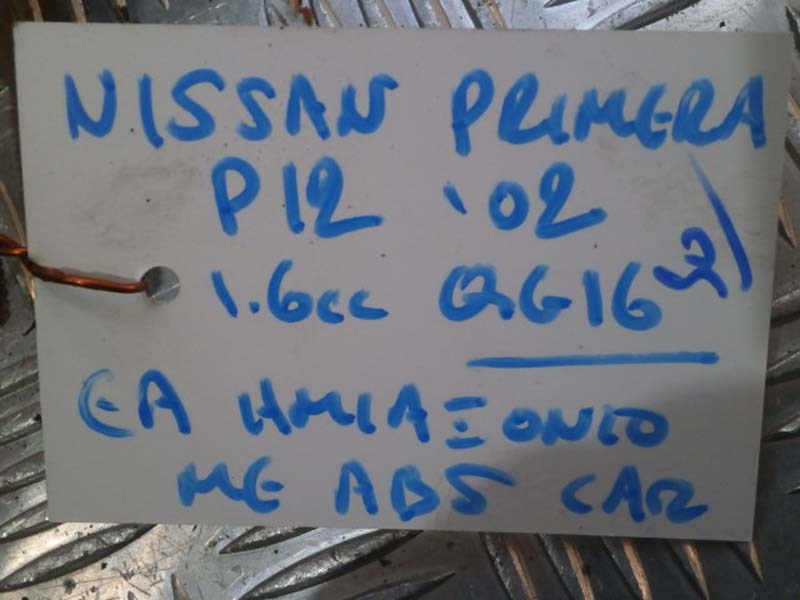 NISSAN PRIMERA
P12 '02
1.6cc QG16
ΕΑ ΗΜΙΑΞΟΝΙΟ
ΜΕ ABS CAR